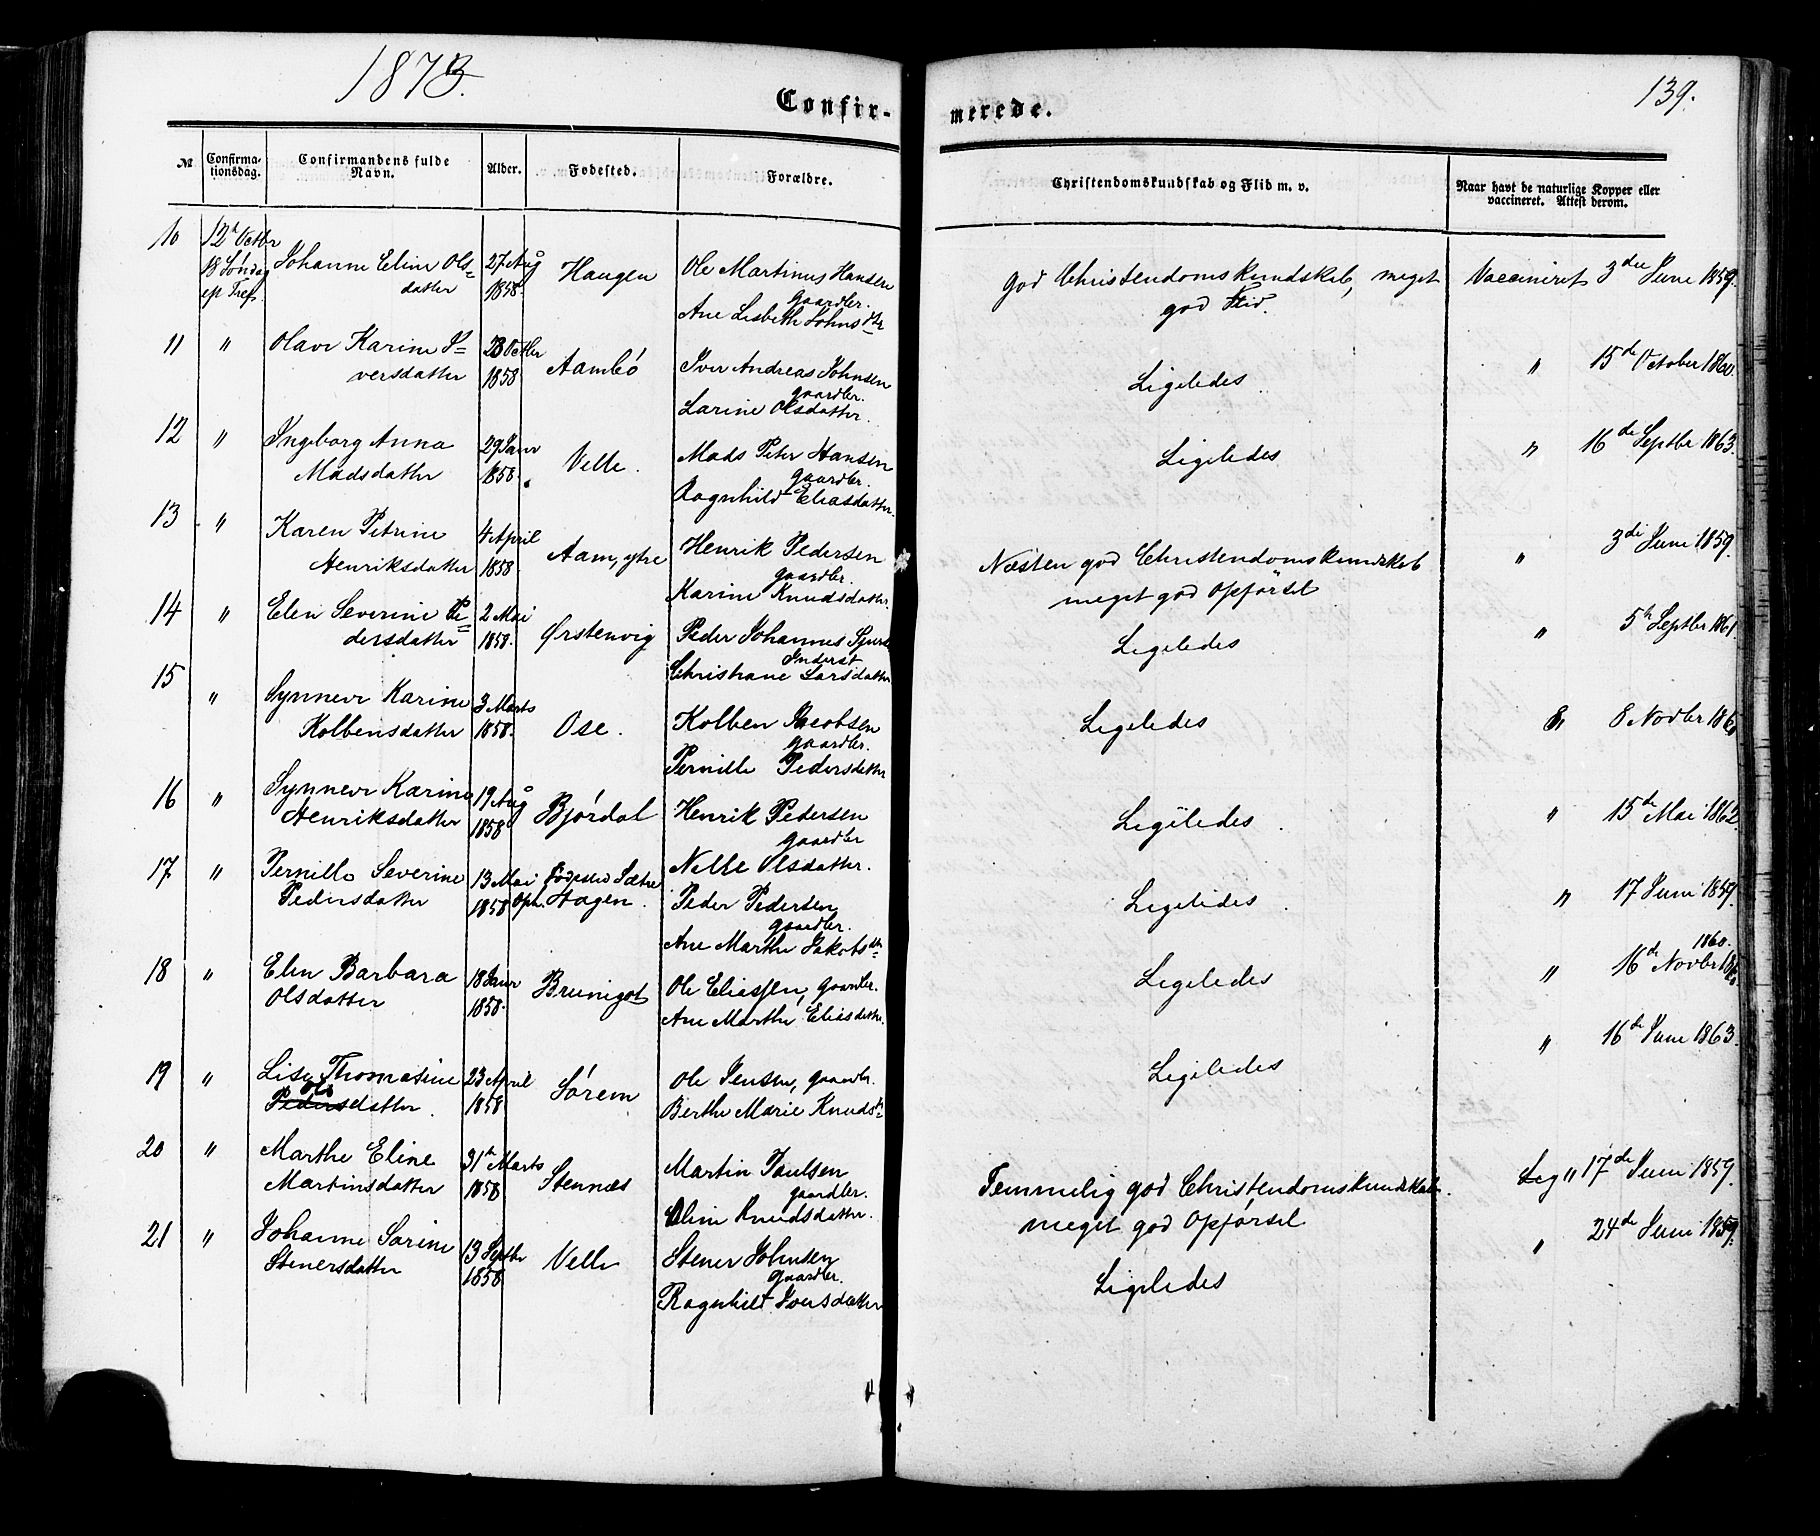 1873.
139.
Confir-
merede.
№ Confirma-tionsdag. Confirmandens fulde Navn. Alder. Fødested. Forældre. Christendomskundskab og Flid m. v. Naar havt de naturlige Kopper eller vaccineret. Attest derom.
10 12te Octbr Johanne Eline Ols= 27 Aug Haugen Ole Martinus Hansen god Christendomskundskab, meget Vaccineret 3die Juni 1859.
18 Søndag datter 1858. gaardbr. god Flid.
ep Tref. Ane Lisbeth Johnsdtr
11 " Olave Karine I= 23 Octbr Aambø Iver Andreas Johnsen Ligeledes " 15de October 1860.
versdatter 1858 gaardbr.
Larine Olsdatter.
12 " Ingeborg Anna 29 Janr Velle. Mads Peter Hansen Ligeledes " 16de Septbr 1863.
Madsdatter 1858. gaardbr.
Ragnhild Eliasdatter.
13 " Karen Petrine 4 April Aam, ytre Henrik Pedersen Næsten god Christendomskundskab " 3die Juni 1859.
Henriksdatter 1858. gaardbr. meget god Opførsel
Karine Knudsdatter.
14 " Elen Severine Pe= 2 Mai Ørstenvig Peder Johannes Ligeledes " 5te Septbr 1861.
dersdatter 1858. Inderst
Christiane Larsdatter
15 " Synneve Karine 3 Marts Ose. Kolben Jacobsen Ligeledes 8 Novbr
Kolbensdatter 1858. gaardbr.
Pernille Pedersdatter
16 " Synneve Karine 19 Aug Bjørdal Henrik Pedersen Ligeledes " 15de Mai 1862.
Henriksdatter 1858 gaardbr
Nelle Olsdatter.
17 " Pernille Severine 13 Mai Fødested Sætre Peder Pedersen Ligeledes " 17 Juni 1859.
Pedersdatter 1858 Oph. Hagen. gaardbr.
Ane Marthe Jakobsdtr
18 " Elen Barbara 18 Janr Brunigot Ole Eliassen, gaardbr. Ligeledes " 16de Novbr 1860.
Olsdatter 1858. Ane Marthe Eliasdatter.
19 " Lise Thomasine 23 April Sørem Ole Jensen, gaardbr. Ligeledes " 16de Juni 1863.
Ols
Pedersdatter. 1858 Berthe Marie Knudsdtr
20 " Marthe Eline 31te Marts Stennæs Martin Paulsen Temmelig god Christendomskundskab. Leg " 17de Juni 1859.
Martinsdatter 1858 gaardbr. meget god Opførsel
Eline Knudsdatter.
21 " Johanne Sarine 13 Septbr Velle Stener Johnsen Ligeledes " 24de Juni 1859.
Stenersdatter 1858 gaardbr.
Ragnhild Iversdatter